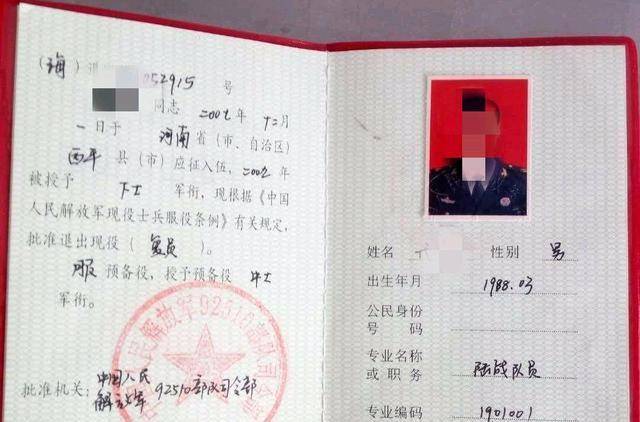 （海）退 052915 号
同志 二00七年 十二月
一日于 河南 省（市、自治区）
西平 县（市）应征入伍，二00九年
被授予 下士 军衔，现根据《中国
人民解放军现役士兵服役条例》有关规定，
批准退出现役（复员）。
服 预备役，授予预备役 中士
军衔。
批准机关：中国人民解放军 92510部队司令部
姓名
性别 男
出生年月 1988.03
公民身份
号码
专业名称
或职务 陆战队员
专业编码 1901001